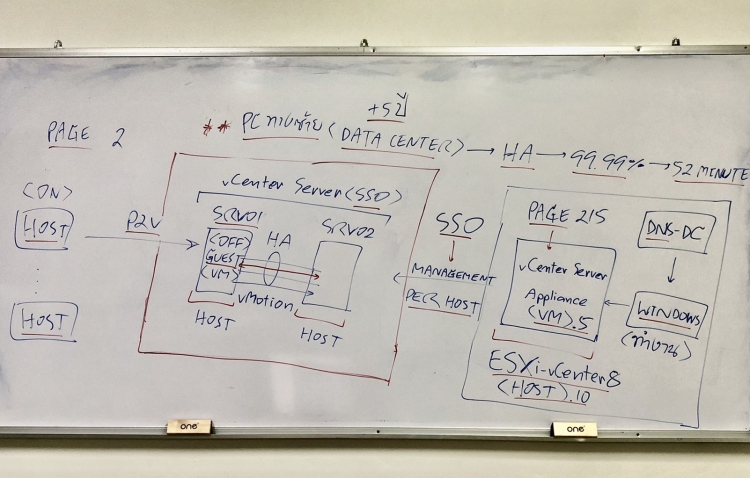 +5ปี
PAGE 2
** PC ทางซ้าย (DATA CENTER) → HA → 99.99% → 52 MINUTE
vCenter Server (SSO)
<ON>
HOST
HOST
P2V
SRV01
(OFF)
GUEST
(VM)
HA
SRV02
vMotion
HOST
HOST
SSO
MANAGEMENT
PER HOST
PAGE 215
vCenter Server
Appliance
(VM).5
ESXi-vCenter8
(HOST).10
DNS-DC
WINDOWS
one
one